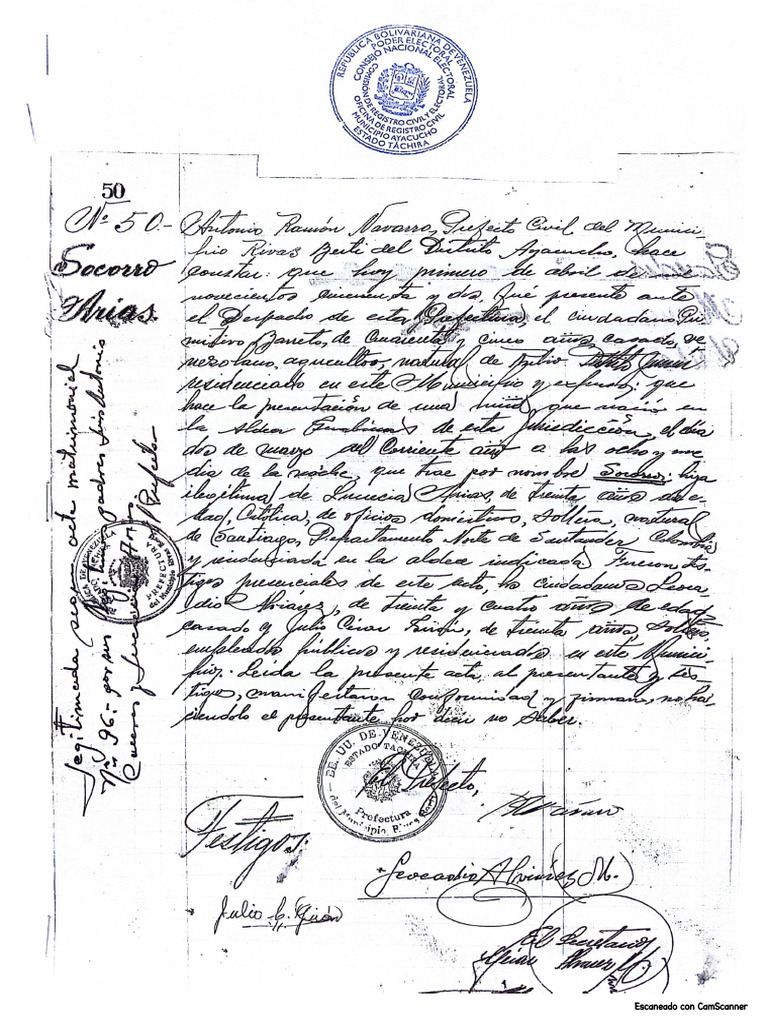 REPÚBLICA BOLIVARIANA DE VENEZUELA
PODER ELECTORAL
CONSEJO NACIONAL ELECTORAL
COMISIÓN DE REGISTRO CIVIL Y ELECTORAL
OFICINA DE REGISTRO CIVIL
MUNICIPIO AYACUCHO
ESTADO TÁCHIRA
50
Nº 50.-
Socorro
Arias.
Antonio Ramón Navarro, Prefecto Civil del Munici-
pio Rivas Berti del Distrito Ayacucho, hace
constar: que hoy primero de abril de mil
novecientos cincuenta y dos, fué presente ante
el Despacho de esta Prefectura, el ciudadano Pri-
mitivo Barreto, de cincuenta y cinco años, casado, ve-
nezolano, agricultor, natural de
residenciado en este Municipio y expuso: que
hace la presentación de una niña que nació en
la Aldea de esta Jurisdicción, el día
dos de marzo del corriente año a las ocho y me
dia de la noche, que trae por nombre Socorro: hija
ilegítima de Lucrecia Arias, de treinta años de e-
dad, Católica, de oficios domésticos, soltera, natural
de Santiago, Departamento Norte de Santander Colombia
y residenciada en la aldea indicada Fueron tes-
tigos presenciales de este acto, los ciudadanos Leoca
dio Alviárez, de treinta y cuatro años de edad
casado y Julio César, de treinta años, soltero,
empleados públicos y residenciados en este Munici-
pio. Leída la presente acta al presentante y tes-
tigos, manifestaron conformidad y firman, no ha-
ciendolo el presentante por decir no saber.
Legitimada según acta matrimonial
Nº 96.- por sus padres Luis Antonio
y Lucrecia Arias
El Prefecto
EE. UU. DE VENEZUELA
ESTADO TACHIRA
Prefectura
del Municipio Rivas Berti
El Prefecto,
Testigos:
Leocadio Alviárez M.
Julio C.
El Secretario
Escaneado con CamScanner